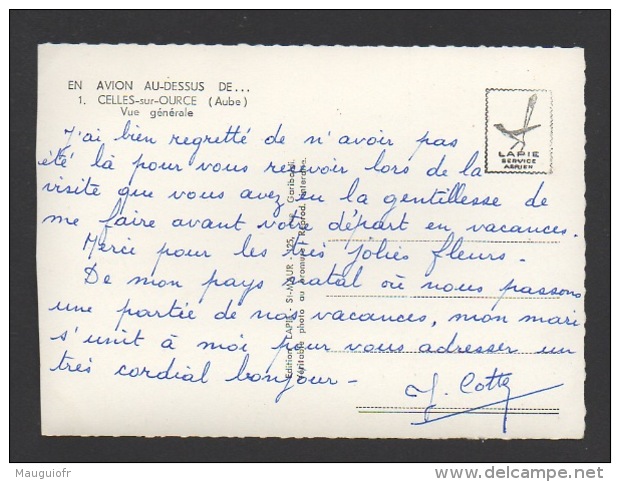 EN AVION AU-DESSUS DE...
1. CELLES-sur-OURCE (Aube)
Vue générale
LAPIE
SERVICE
AERIEN
J'ai bien regretté de n'avoir pas
été là pour vous recevoir lors de la
visite que vous avez eu la gentillesse de
me faire avant votre départ en vacances.
Merci pour les très jolies fleurs.
De mon pays natal où nous passons
une partie de nos vacances, mon mari
s'unit à moi pour vous adresser un
très cordial bonjour -
J. Cotte
Editions LAPIE - St-MAUR - 125, Garibaldi.
Véritable photo au bromure - Reprod. interdite.
Mauguiofr
www.delcampe.net